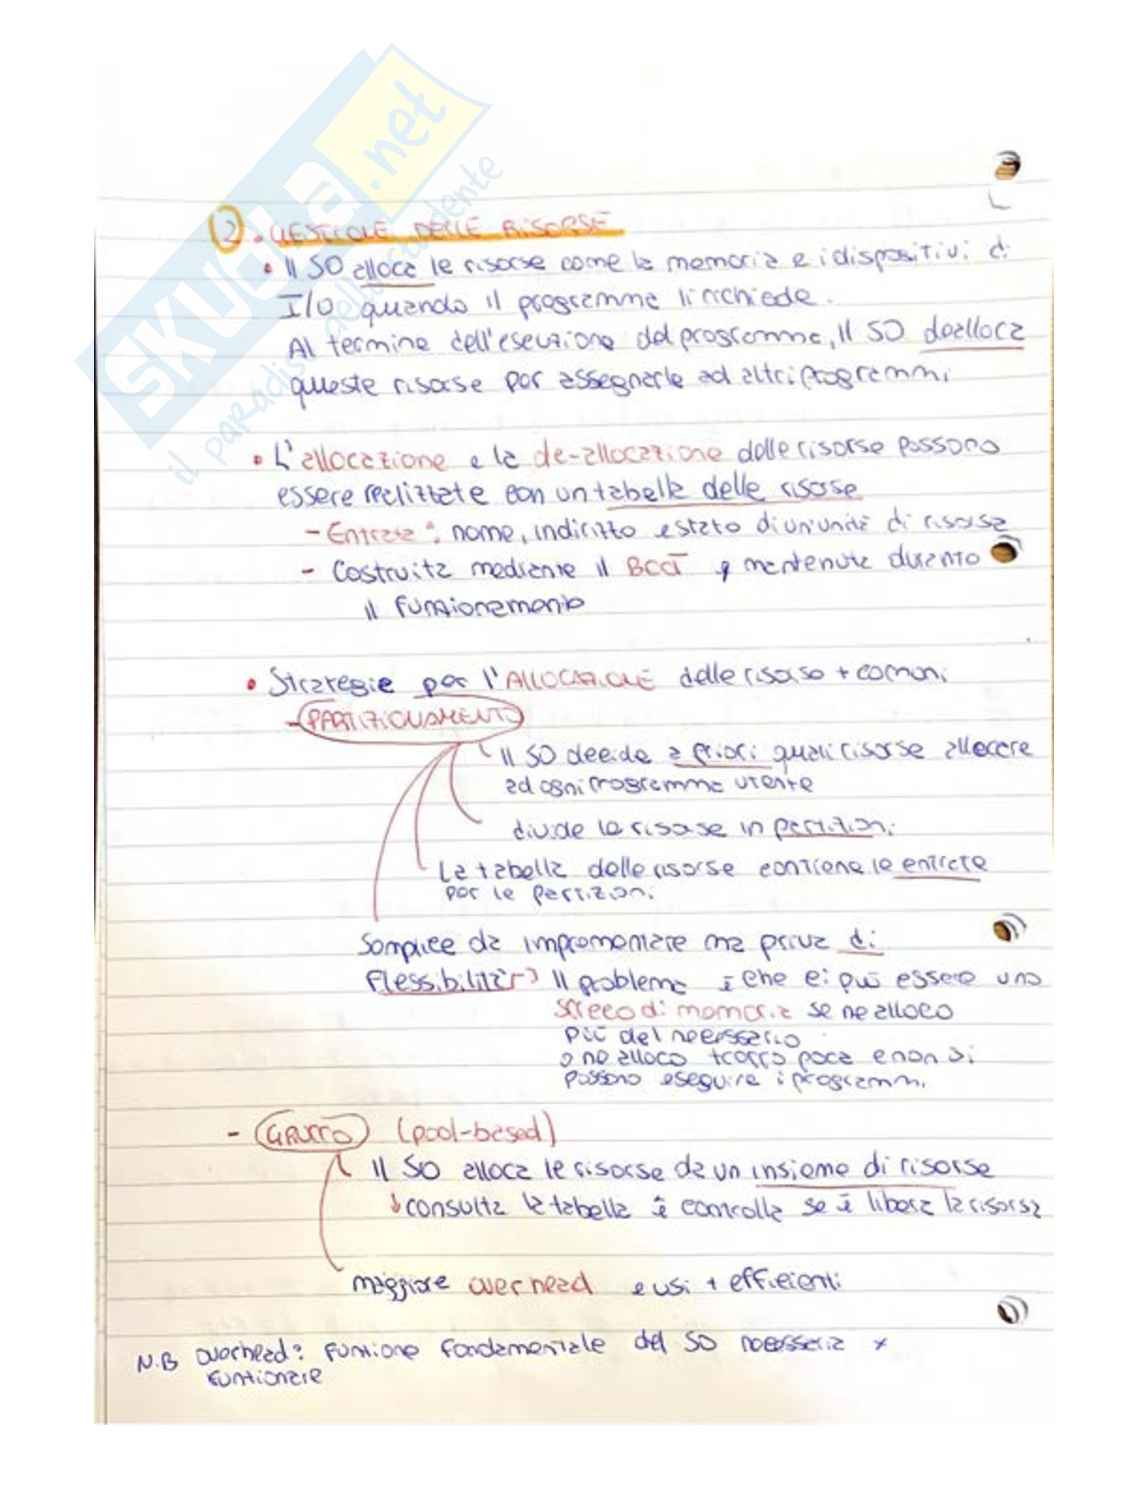 SKUOLA.net
il paradiso dello studente
2. GESTIONE DELLE RISORSE
• Il SO alloca le risorse come la memoria e i dispositivi di
I/O quando il programma li richiede.
Al termine dell'esecuzione del programma, Il SO dealloca
queste risorse per assegnarle ad altri programmi
• L'allocazione e la de-allocazione delle risorse possono
essere realizzate con un tabella delle risorse
- Entrata: nome, indirizzo e stato di un'unità di risorsa
- Costruita mediante il BOOT e mantenuta durante
il funzionamento
• Strategie per l'ALLOCAZIONE delle risorse + comuni
- PARTIZIONAMENTO
Il SO decide a priori quali risorse allocare
ad ogni programma utente
divide le risorse in partizioni
La tabella delle risorse contiene le entrate
per le partizioni
Semplice da imprementare ma priva di
flessibilità → Il problema è che ci può essere uno
spreco di memoria se ne alloco
più del necessario
o ne alloco troppo poca e non si
possono eseguire i programmi
- GRUPPO (pool-based)
Il SO alloca le risorse da un insieme di risorse
↓ consulta la tabella e controlla se è libera la risorsa
maggiore overhead e usi + efficienti
N.B overhead: funzione fondamentale del SO necessaria x
funzionare